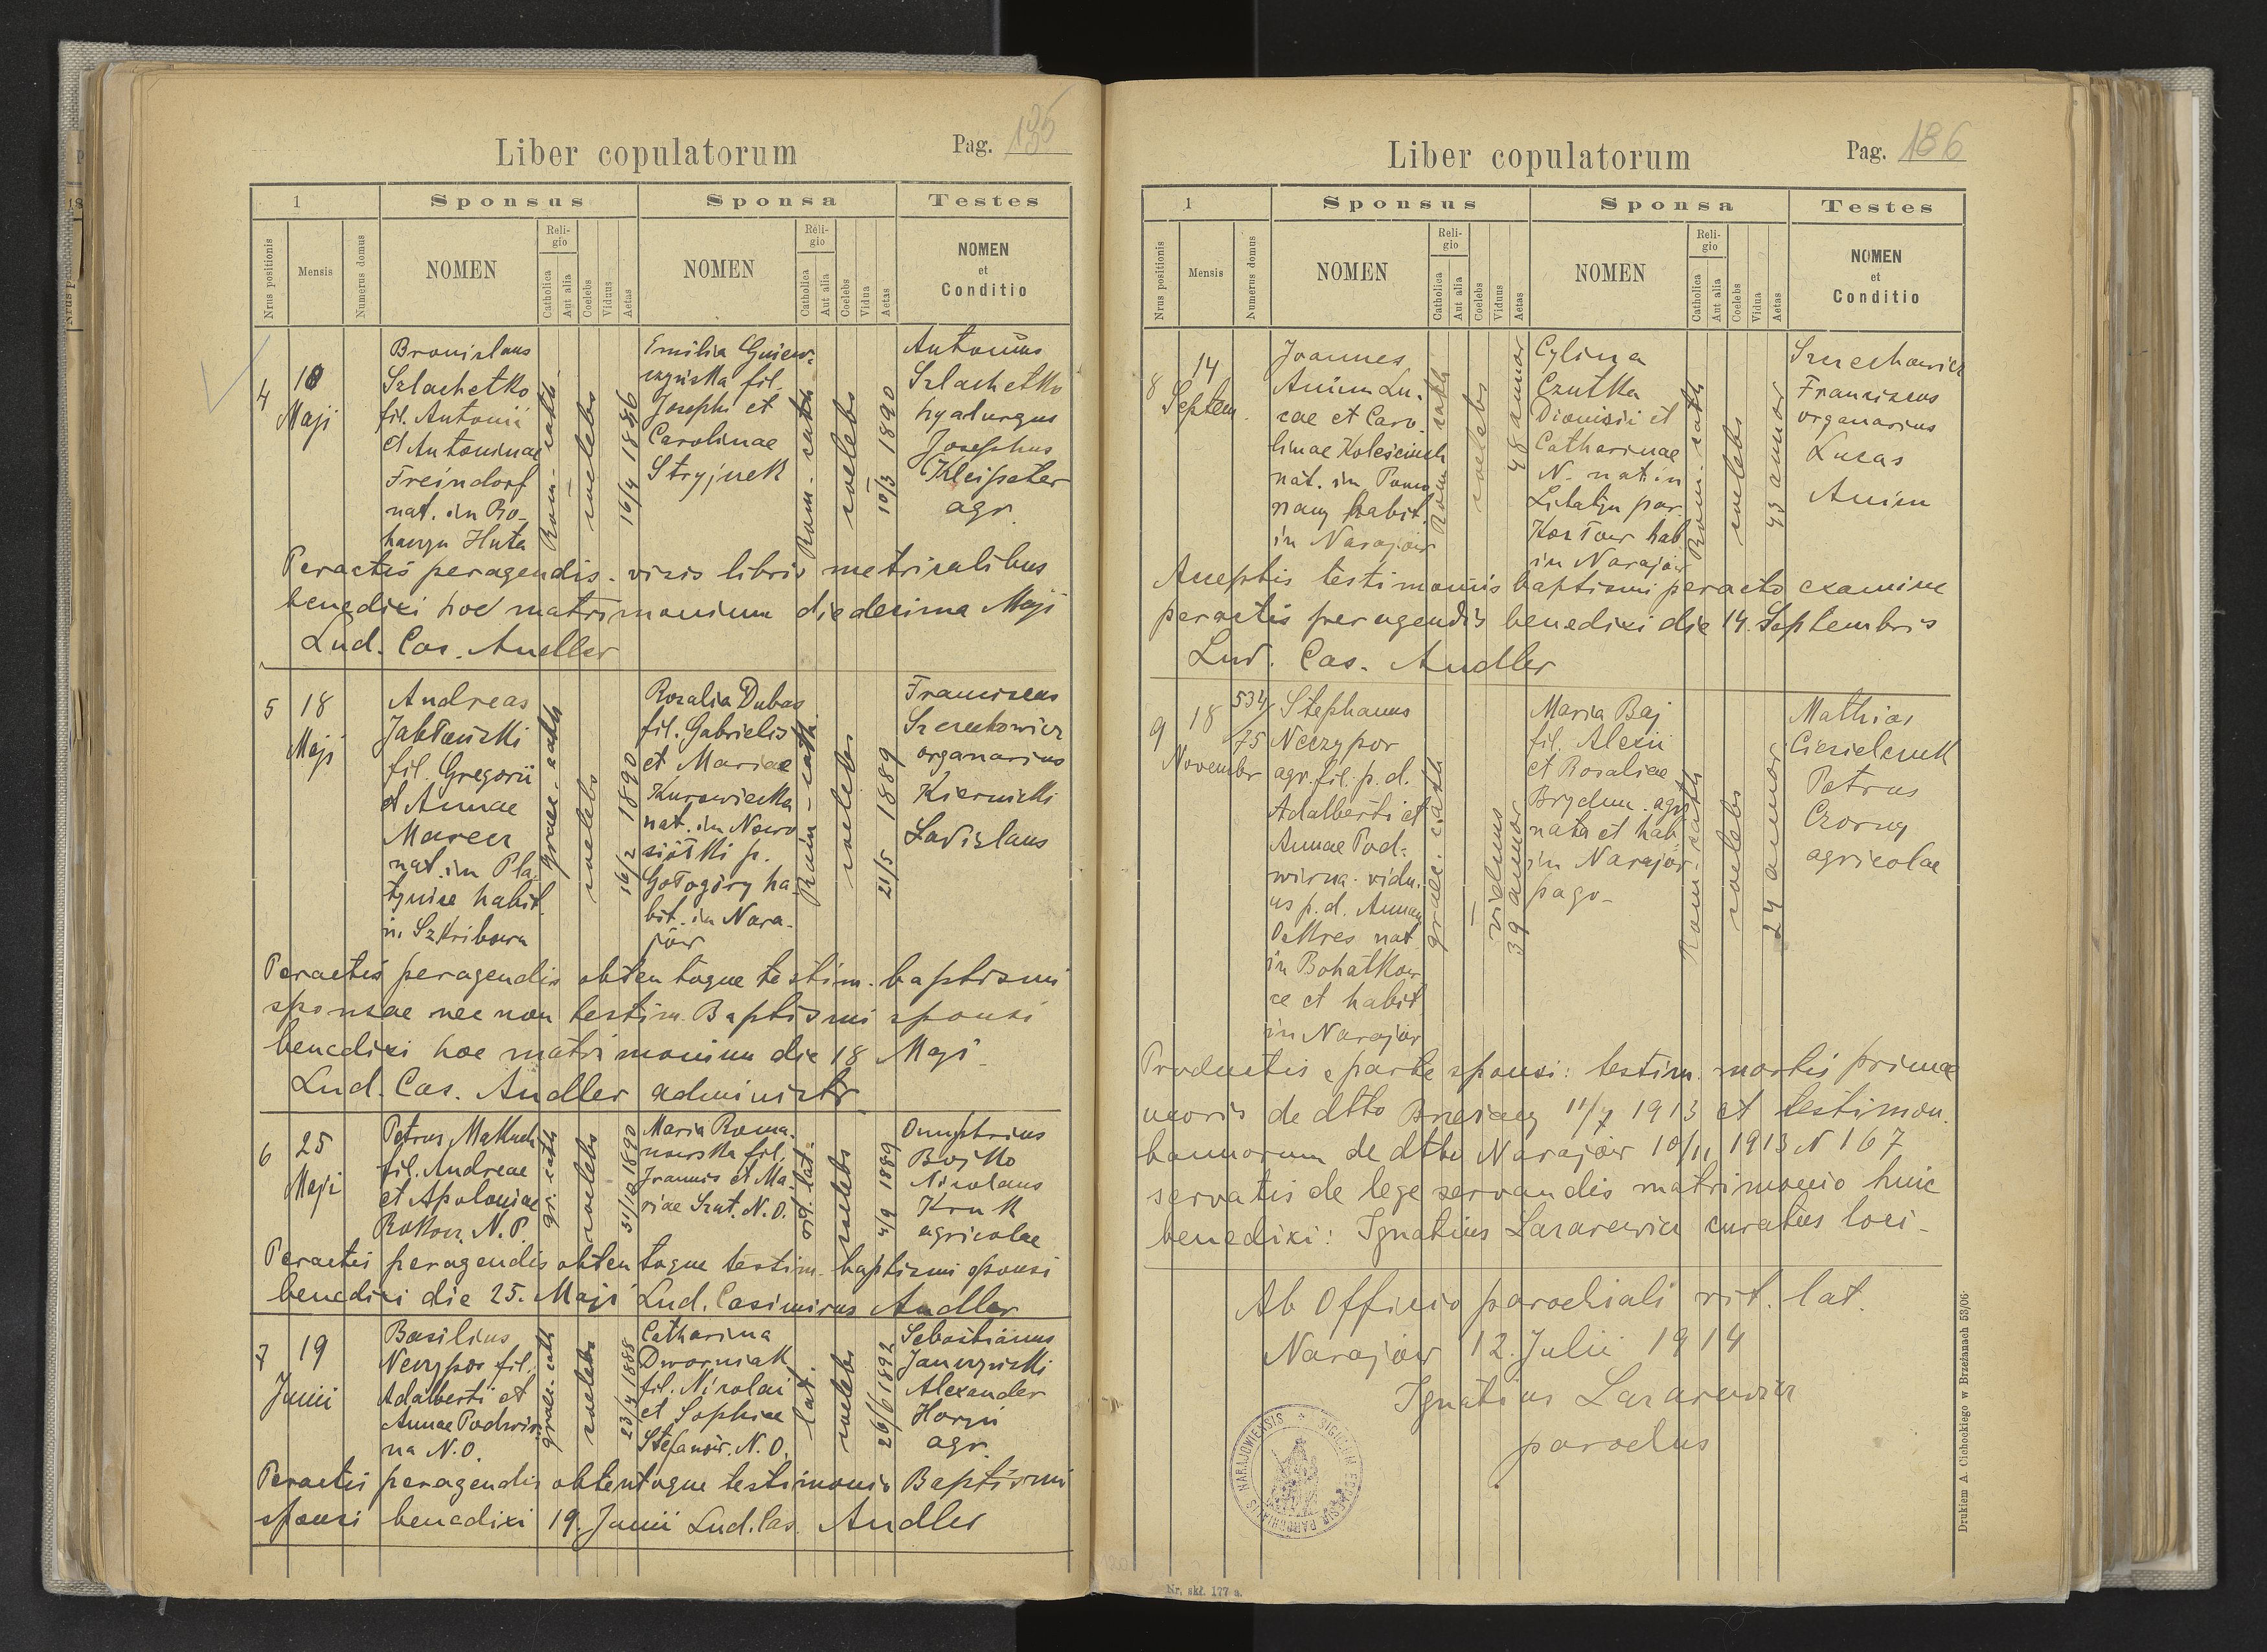 Liber copulatorum
Pag. 135
1
Sponsus
Sponsa
Testes
Nrus positionis
Mensis
Numerus domus
NOMEN
Religio
Catholica
Aut alia
Coelebs
Viduus
Aetas
NOMEN
Religio
Catholica
Aut alia
Coelebs
Vidua
Aetas
NOMEN
et
Conditio
4
10
Maji
Bronislaus
Szlachetko
fil. Antonii
et Antoninae
Freindorf
nat. in Ro-
haczyn Huta
Rom. cath.
coelebs
16/4 1886
Emilia Gniew-
czyńska fil.
Josephi et
Carolinae
Stryjnek
Rom. cath.
coelebs
10/3 1890
Antonius
Szlachetko
hyalurgus
Josephus
Kleipeter
agr.
Peractis peragendis. visis libris metricalibus
benedixi hoc matrimonium die decima Maji
Lud. Cas. Andler
5
18
Maji
Andreas
Jabłoński
fil. Gregorii
et Annae
Marcer
nat. in Pla
tynice habit.
in Szkribowa
graec. cath
coelebs
16/2 1890
Rosalia Dubas
fil. Gabrielis
et Mariae
Kurowiecka
nat. in Nowo
siółki p.
Gołogóry ha-
bit. in Nara-
jów
Rom-cath
coelebs
21/5 1889
Franciscus
Szczechowicz
organarius
Kiernicki
Ladislaus
Peractis peragendis obtentoque testim. baptismi
sponsae nec non testim. Baptismi sponsi
benedixi hoc matrimonium die 18 Maji
Lud. Cas. Andler administr.
6
25
Maji
Petrus Makuch
fil. Andreae
et Apoloniae
Rokosz. N. P.
gr. cath
coelebs
31/12 1890
Maria Roma-
nowska fil.
Joannis et Ma-
riae Szat. N. O.
rit. lat.
coelebs
4/9 1889
Onuphrius
Bojko
Nicolaus
Kruk
agricolae
Peractis peragendis obtentoque testim. baptismi sponsi
benedixi die 25. Maji Lud. Casimirus Andler
7
19
Junii
Basilius
Neczypor fil.
Adalberti et
Annae Podwir-
na N. O.
graec. cath
coelebs
23/4 1888
Catharina
Dworniak
fil. Nicolai
et Sophiae
Stefanów. N. O.
lat.
coelebs
26/6 1892
Sebastianus
Janczyński
Alexander
Horyn
agr.
Peractis peragendis obtentoque testimonio Baptismi
sponsi benedixi 19. Junii Lud. Cas. Andler
Liber copulatorum
Pag. 136
1
Sponsus
Sponsa
Testes
Nrus positionis
Mensis
Numerus domus
NOMEN
Religio
Catholica
Aut alia
Coelebs
Viduus
Aetas
NOMEN
Religio
Catholica
Aut alia
Coelebs
Vidua
Aetas
NOMEN
et
Conditio
8
14
Septem.
Joannes
Anium Lu-
cae et Caro-
linae
nat. in Pomo-
rzany habit.
in Narajów
Rom cath
coelebs
48 annor
Cylina
Czutka
Dionisii et
Catharinae
N. nat in
Litatyn par.
Kozłow hab
in Narajow
Rom. cath
coelebs
43 annor
Szczechowicz
Franciscus
organarius
Lucas
Anim
Acceptis testimoniis baptismi peracto examine
peractis peragendis benedixi die 14. Septembris
Lud. Cas. Andler
9
18
Novembr
534/75
Stephanus
Neczypor
agr. fil. p. d.
Adalberti et
Annae Pod-
wirna. vidu-
us p. d. Annae
Okres nat
in Bohatkow
ce et habit
in Narajow
graec. cath
viduus
39 annor
Maria Baj
fil. Alexii
et Rosaliae
Brydun. agr.
nata et hab
in Narajow
pago-
Rom. cath
coelebs
24 annor
Mathias
Ciesielczuk
Petrus
Czorny
agricolae
Productis e parte sponsi: testim. mortis primae
uxoris de dtto Brzeżany 11/7 1913 et testimon.
bannorum de dtto Narajow 10/11 1913 N 167
servatis de lege servandis matrimonio huic
benedixi: Ignatius Lazarewicz curatus loci-
Ab Officio parochiali rit. lat.
Narajow 12. Julii 1914
Ignatius Lazarewicz
parochus
SIGILLUM ECCLESIÆ PAROCHIALIS NARAJOWIENSIS
Drukiem A. Cichockiego w Brzeżanach 53/06
Nr. skł. 177 a.